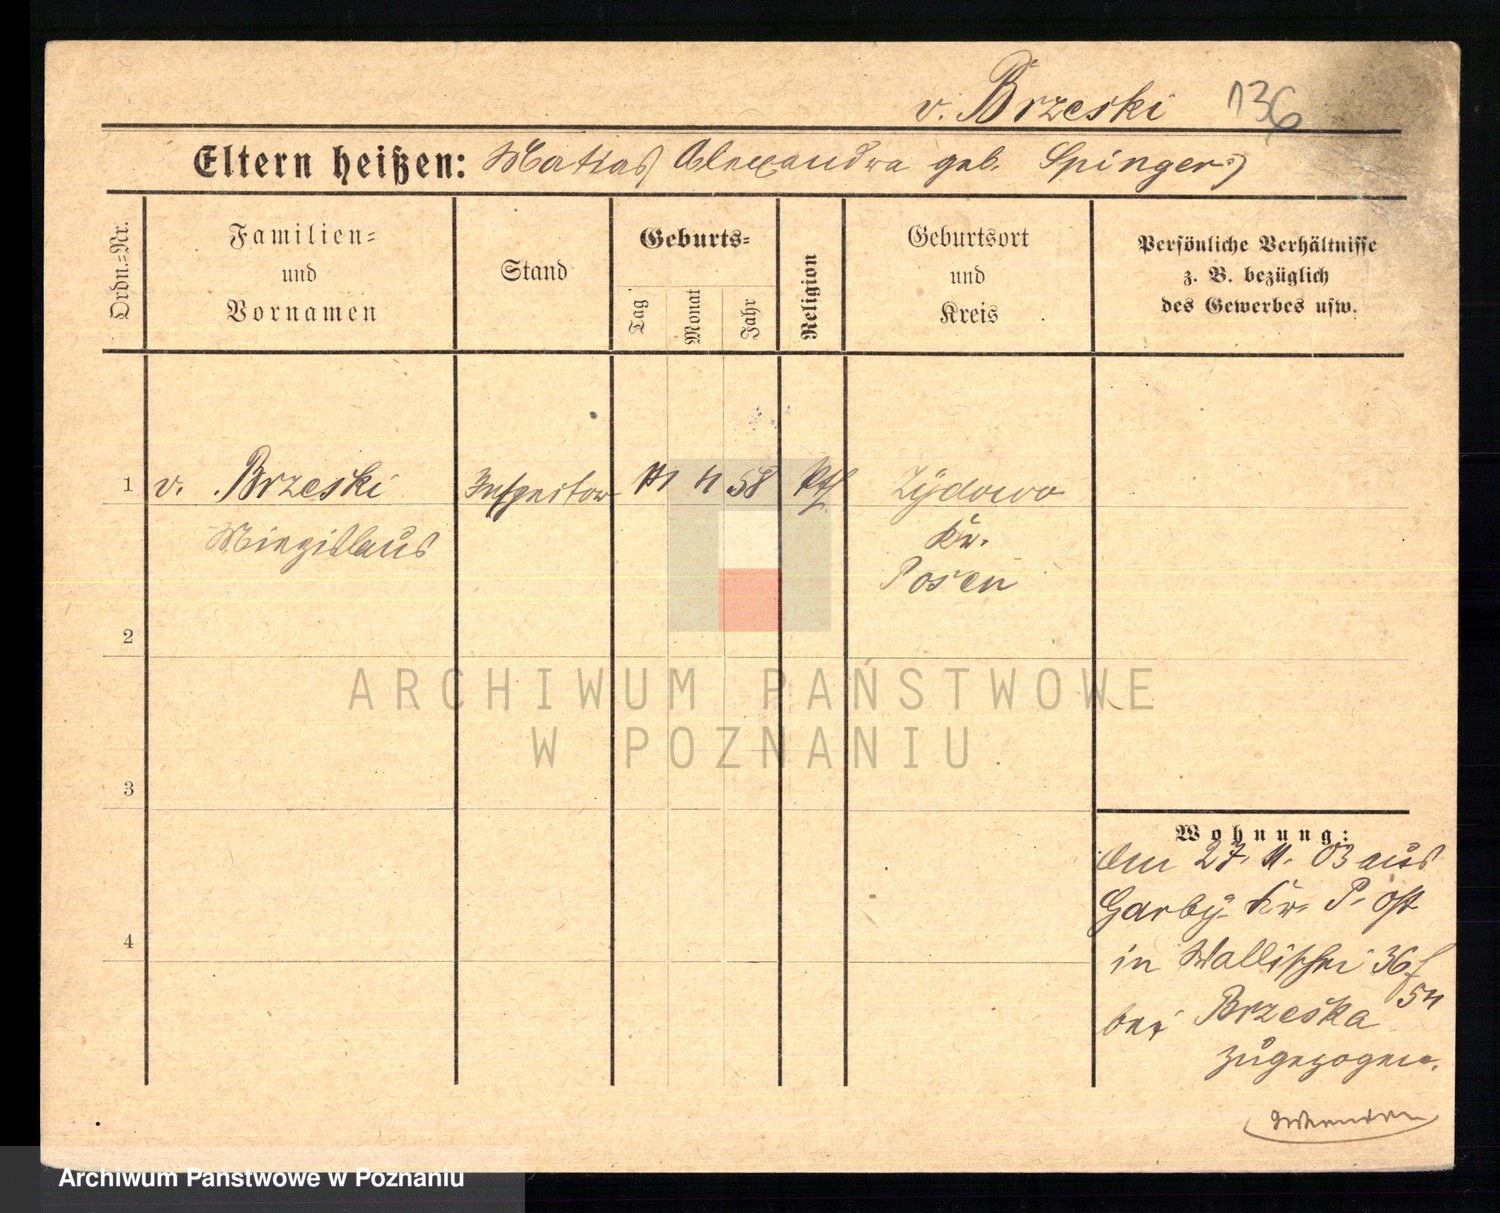 v. Brzeski 136
Eltern heißen: Matias, Alexandra geb. Spinger)
Ordn.-Nr.
Familien-
und
Vornamen
Stand
Geburts-
Tag
Monat
Jahr
Religion
Geburtsort
und
Kreis
Persönliche Verhältnisse
z. B. bezüglich
des Gewerbes usw.
1 v. Brzeski Inspector 11 58 kth Zÿdowo
Miezislaus Kr.
Posen
2
3
4
Wohnung:
Am 27. 11. 03 aus
Garbÿ Kr. P. Ost
in Wallischei 36/
bei Brzeska
zugezogen.
ARCHIWUM PAŃSTWOWE
W POZNANIU
Archiwum Państwowe w Poznaniu